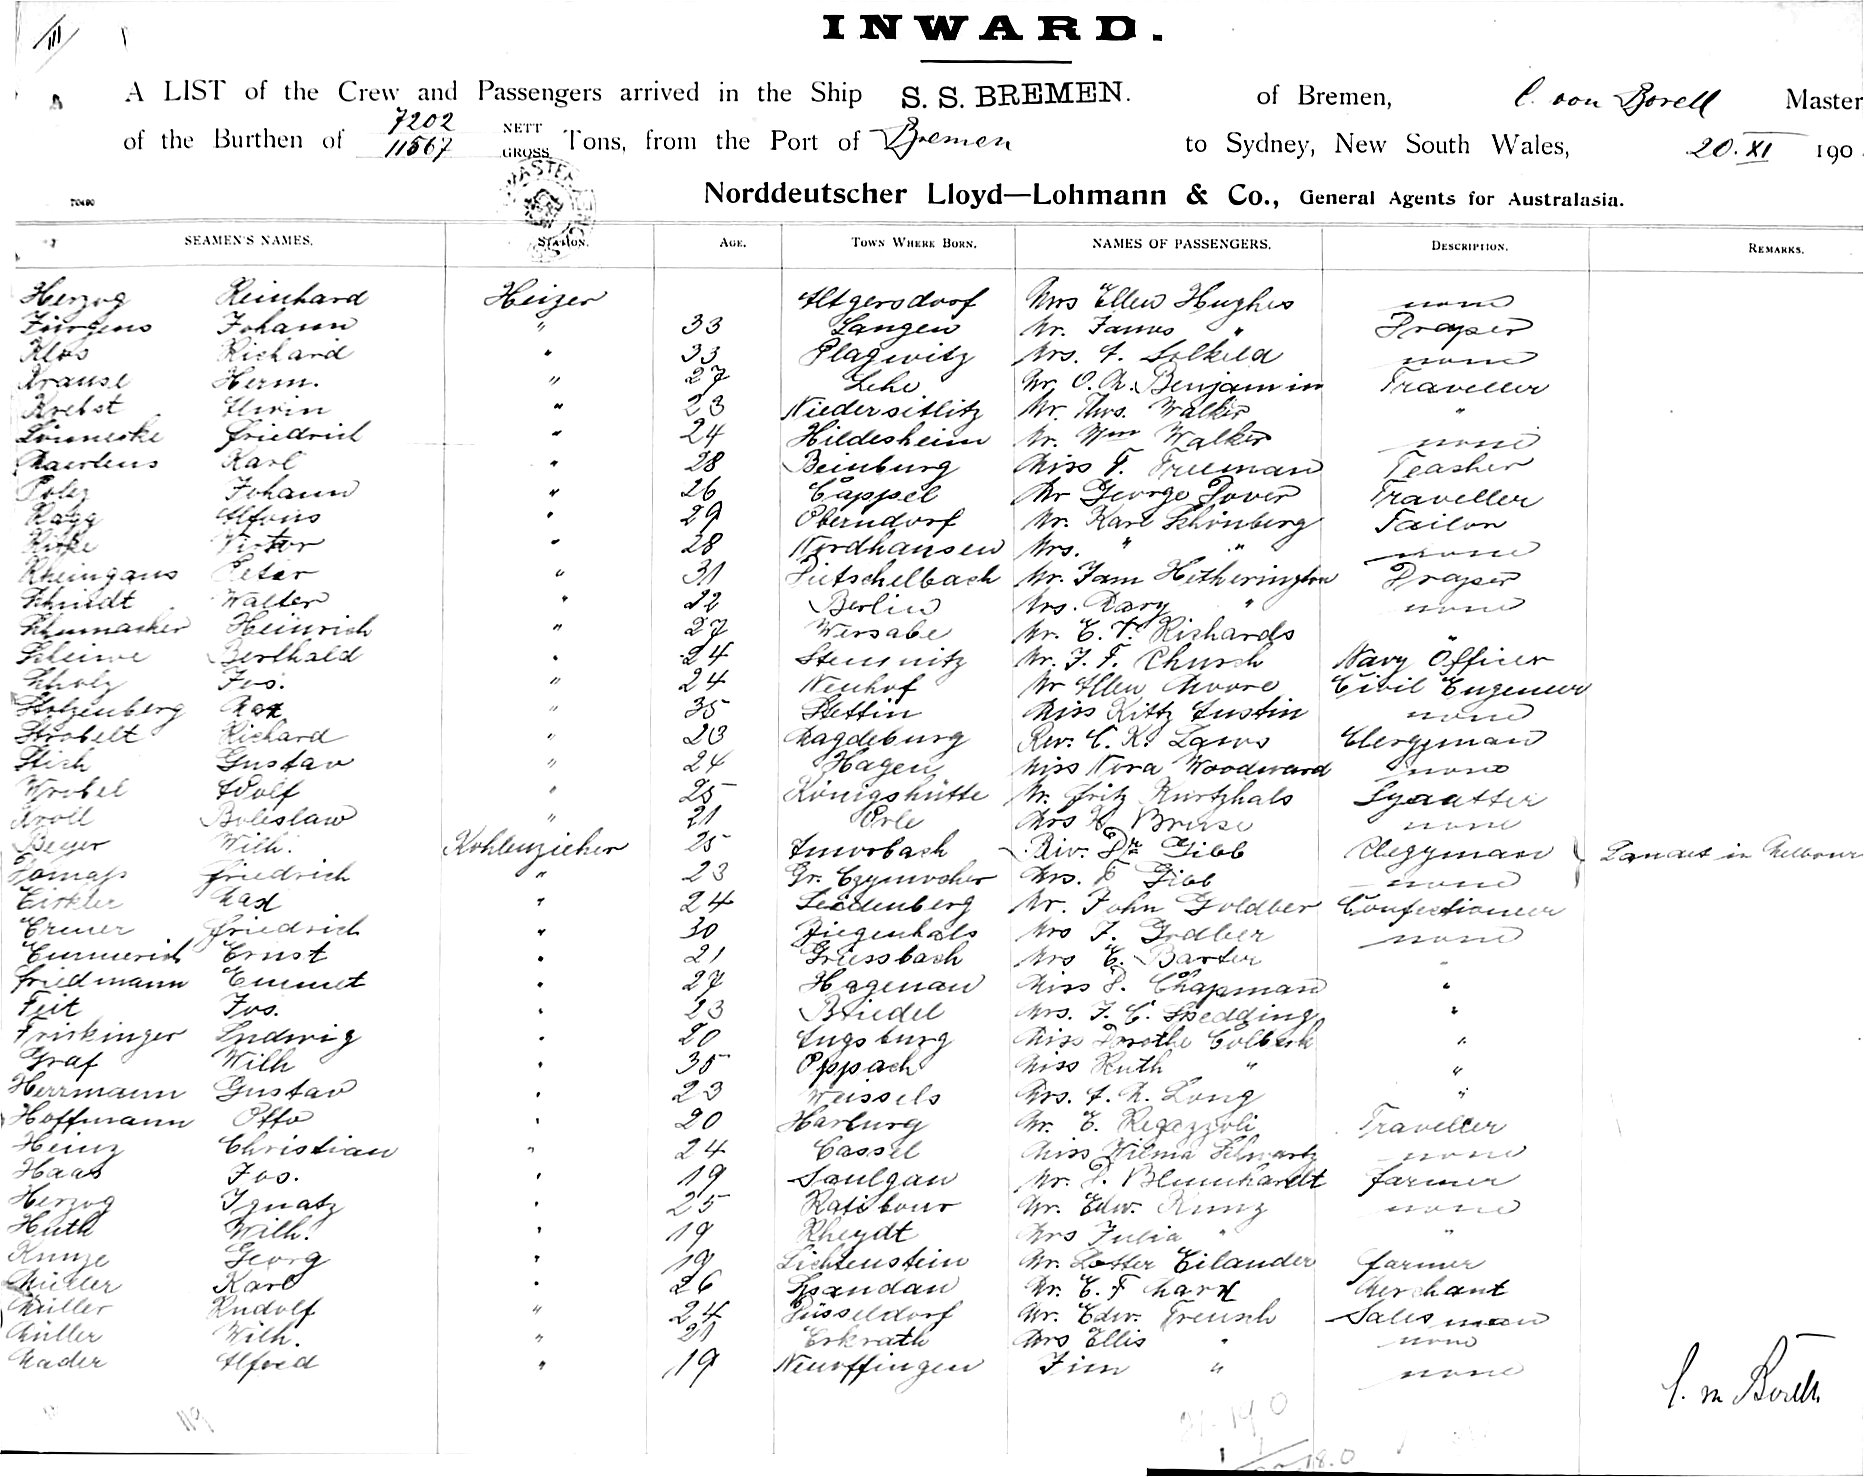 III
INWARD.
A LIST of the Crew and Passengers arrived in the Ship S. S. BREMEN. of Bremen, C. von Borell Master
of the Burthen of 7202 11567 NETT GROSS Tons, from the Port of Bremen to Sydney, New South Wales, 20. XI 190
70480 Norddeutscher Lloyd—Lohmann & Co., General Agents for Australasia.
SEAMEN'S NAMES. STATION. AGE. TOWN WHERE BORN. NAMES OF PASSENGERS. DESCRIPTION. REMARKS.
Herzog Reinhard Heizer Altgersdorf Mrs Ellen Hughes none
Jürgens Johann " 33 Langen Mr. James " Draper
Klos Richard " 33 Plagwitz Mrs. A. Solkeld none
Krause Herm. " 27 Lehe Mr. O. M. Benjamin Traveller
Krebst Alwin " 23 Niedersitlitz Mr. Thos. Walker "
Lönnecke Friedrich " 24 Hildesheim Mr. Wm Walker none
Maertens Karl " 28 Beinburg Miss F. Freeman Teasher
Polez Johann " 26 Cappel Mr George Dover Traveller
Ragg Alfons " 29 Oberndorf Mr. Karl Schönberg Tailor
Ritke Victor " 28 Nordhausen Mrs. " " none
Rheingans Peter " 31 Pietschelbach Mr. Jam Hetherington Draper
Schmidt Walter " 22 Berlin Mrs. Mary " none
Schumacher Heinrich " 27 Wersabe Mr. E. T. Richards
Schleiwe Berthald " 24 Stemnitz Mr. J. F. Church Navy Officer
Scholz Jos. " 24 Neuhof Mr Allen Moore Civil Engeneer
Stolzenberg Max " 35 Stettin Miss Kitty Austin none
Strobelt Richard " 23 Magdeburg Rev. C. K. Laws Clergyman
Stich Gustav " 24 Hagen Miss Nora Woodward none
Wrobel Adolf " 25 Königshütte Mr. Fritz Kurtzhals
Kroll Boleslaw " 21 Orle Mrs H. Breese none
Beyer Wilh. Kohlenzieher 25 Amorbach Rev. Dr. Gibb Clegyman Landet in Melbour
Domass Friedrich " 23 Gr. Czymocher Mrs. F. Gibb none
Eirkler Max " 24 Leidenberg Mr. John Goldber Confectioneer
Ermer Friedrich " 30 Ziegenhals Mrs J. Goldber none
Emmerich Ernst " 21 Griessbach Mrs E. Barter "
Friedmann Emmet " 27 Hagenau Miss P. Chapman "
Feit Jos. " 23 Briedel Mrs. J. C. Spedding "
Friskinger Ludwig " 20 Augsburg Miss Dorothe Colbeck "
Graf Wilh " 35 Oppach Miss Ruth " "
Herrmann Gustav " 23 Weissels Mrs. A. M. Long "
Hoffmann Otto " 20 Harburg Mr. E. Regazzoli Traveller
Heinz Christian " 24 Cassel Miss Wilma Schwartz none
Haas Jos. " 19 Saulgau Mr. P. Blumhardt farmer
Herzog Ignatz " 25 Ratibour Mr. Edw. Kunz none
Huth Wilh. " 19 Rheydt Mrs Julia " "
Kunze Georg " 19 Lichtenstein Mr. Lotter Eilander farmer
Müller Karl " 26 Schandau Mr. E. F Marx Merchant
Müller Rudolf " 24 Düsseldorf Mr. Edw. Treusch Salesman
Müller Wilh. " 21 Erkrath Mrs Ellis " none
Mader Alfred " 19 Neuoffingen Jim " none
C. v. Borell
119